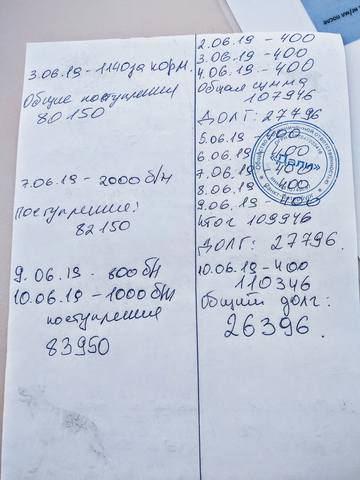 3.06.19 - 1140 за корм.
Общие поступления
80150
7.06.19 - 2000 б/н
поступление:
82150
9.06.19 - 800 б/н
10.06.19 - 1000 б/н
поступления
83950
2.06.19 - 400
3.06.19 - 400
4.06.19 - 400
Общая сумма
107946
ДОЛГ: 27796
5.06.19 - 400
6.06.19 - 400
7.06.19 - 400
8.06.19 - 400
9.06.19 - 400
Итог 109946
ДОЛГ: 27796.
10.06.19 - 400
110346
Общий долг:
26396.